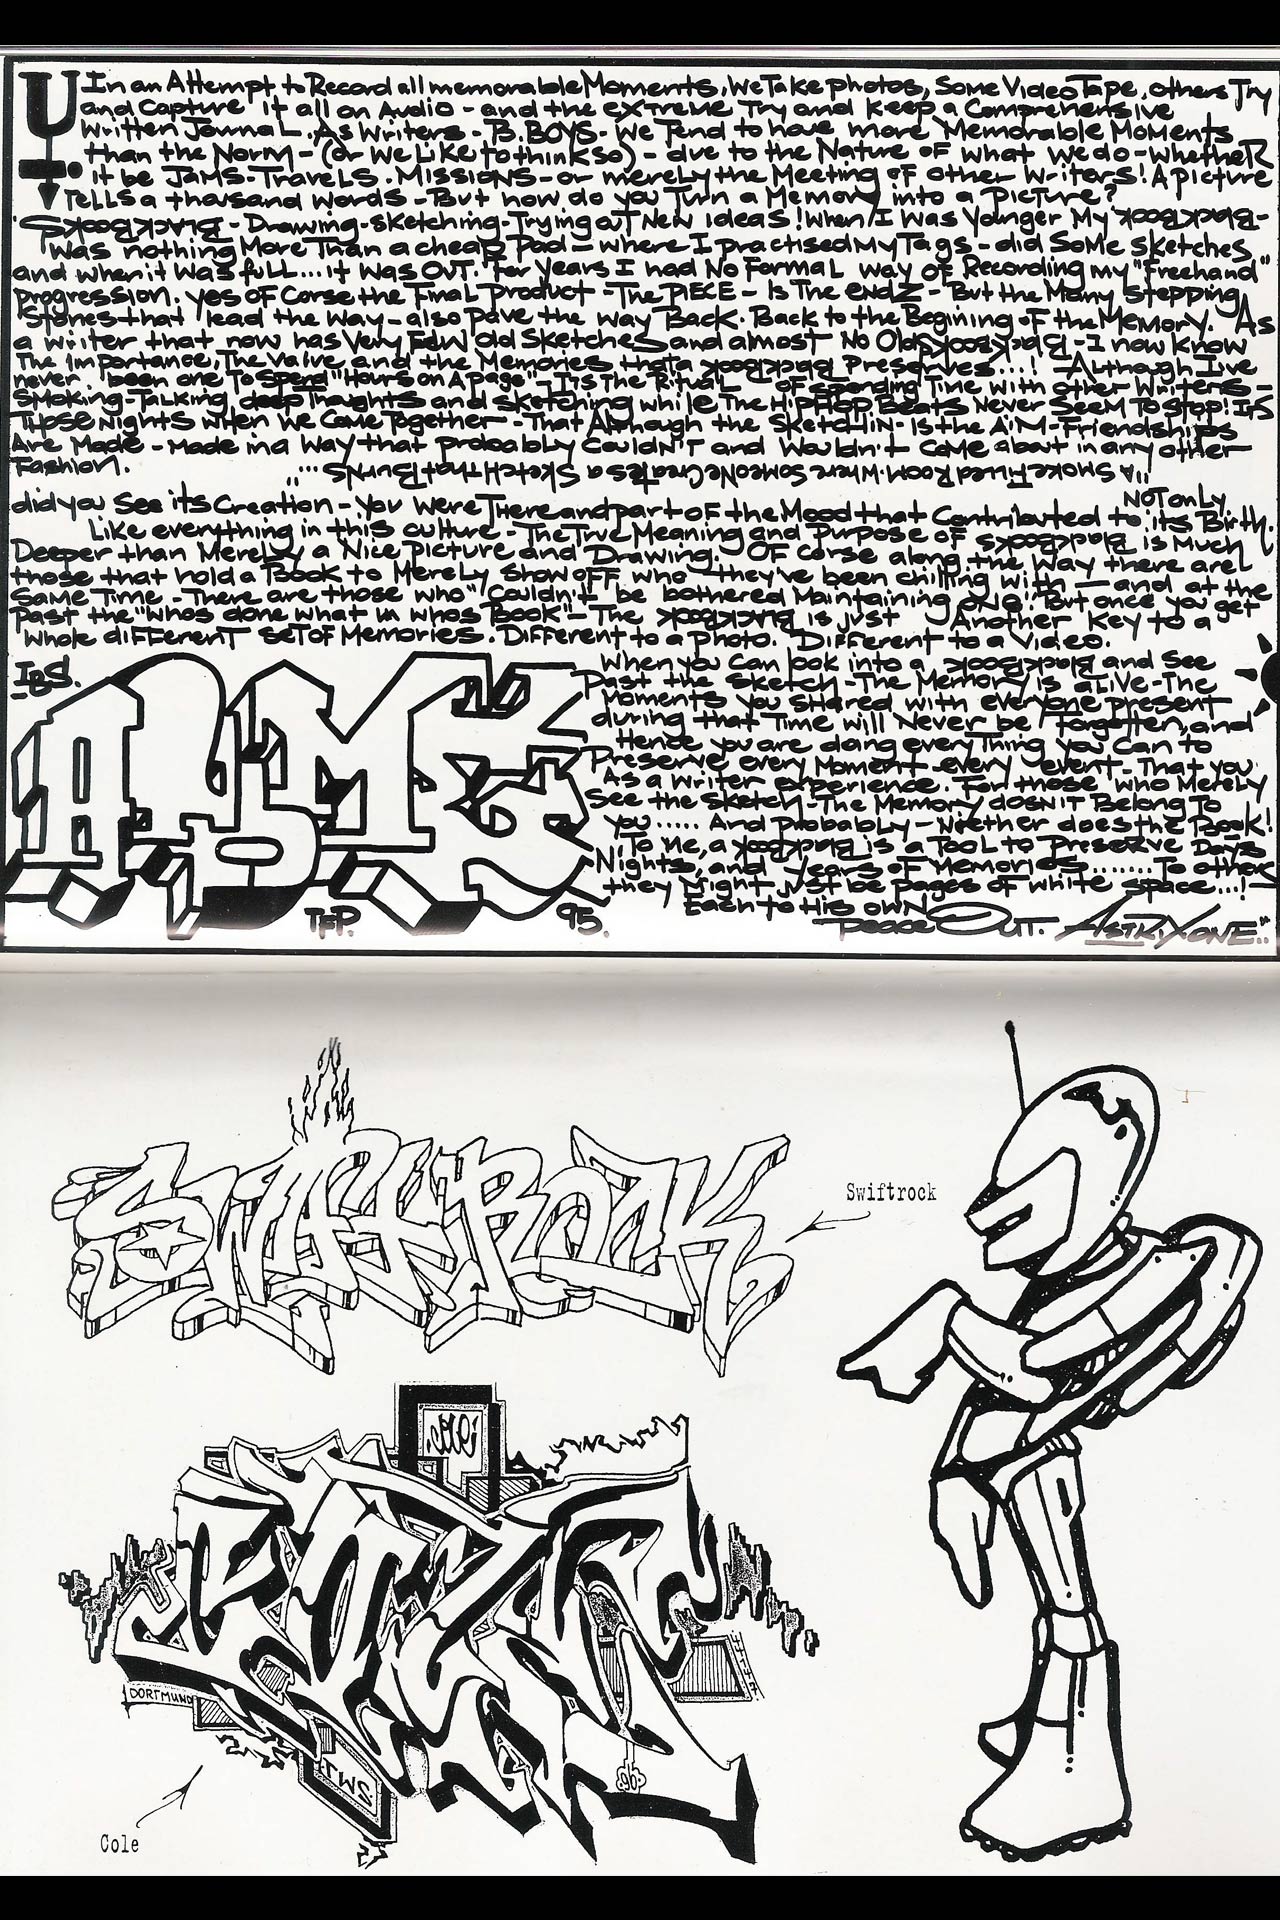 In an Attempt to Record all memorable Moments, We Take photos, Some Video Tape, others Try
and Capture it all on Audio - and the eXTreme Try and Keep a Comprehensive
written Journal. As Writers - B.BOYS - We Tend to have more Memorable Moments
than the Norm - (or We Like to think so) - due to the Nature of what we do - whether
it be JAMS - Travels. Missions - or merely the Meeting of other Writers! A picture
Tells a thousand words - But how do you Turn a Memory into a Picture?
BlackBooks - Drawing - sketching - Trying out New ideas! When I Was Younger My BlackBook -
Was nothing More Than a cheap Pad - where I practised My Tags - did Some sketches
and when it Was full... it Was OUT. For years I had No Formal way of Recording my "Freehand"
progression. Yes of Corse the Final Product - The PIECE - Is The endz - But the Many Stepping
Stones that lead the Way - also pave the way Back. Back to the Begining of the Memory. As
a writer that now has Very Few Old Sketches and almost No Old BlackBooks - I now Know
The Importance, The Valve and the Memories that a BlackBook Preserves...! - Although I've
never been one To Spend "Hours on A page" - Its The Ritual of spending Time with other Writers -
Smoking - Talking deep Thoughts and Sketching while The HipHop Beats Never Seem To Stop! Its
Those Nights when We Come Together - That Although the Sketchin - is the Aim - Friendships
Are Made - Made in a Way that probably Couldn't and Wouldn't Come about in any other
Fashion. "A Smoke Filled Room. Where Someone Creates a Sketch that Burns"...
NOT only
did you See its Creation - You Were There and part of the Mood that Contributed to its Birth.
Like everything in this culture - The True Meaning and Purpose of BlackBooks is Much
Deeper than Merely a Nice Picture and Drawing. Of Corse along the Way there are
those that hold a Book to Merely Show off who they've been chilling with - and at the
Same Time - There are those who "Couldn't be bothered Maintaining one". But once you get
Past the "whos done what in whos Book" - The BlackBook is just Another Key to a
whole different set of Memories. Different to a photo. Different to a Video.
When you Can look into a BlackBook and See
Past the Sketch - The Memory is alive - The
Moments you Shared with everyone present
during that Time will Never be Forgotten, and
Hence you are doing everyThing you Can to
Preserve every Moment - every event - That you
As a writer experience. For those who Merely
See the Sketch - The Memory dosn't Belong To
you..... And probably - Niether does the Book!
To Me, a BlackBook is a Tool to Preserve Days
Nights, and years of Memories....... To others
they Might just be pages of white space...!
Each to His own
Peace Out. AstrixONE"..
TFP.
95.
SWIFTROCK
Swiftrock
DORTMUND
96
Cole